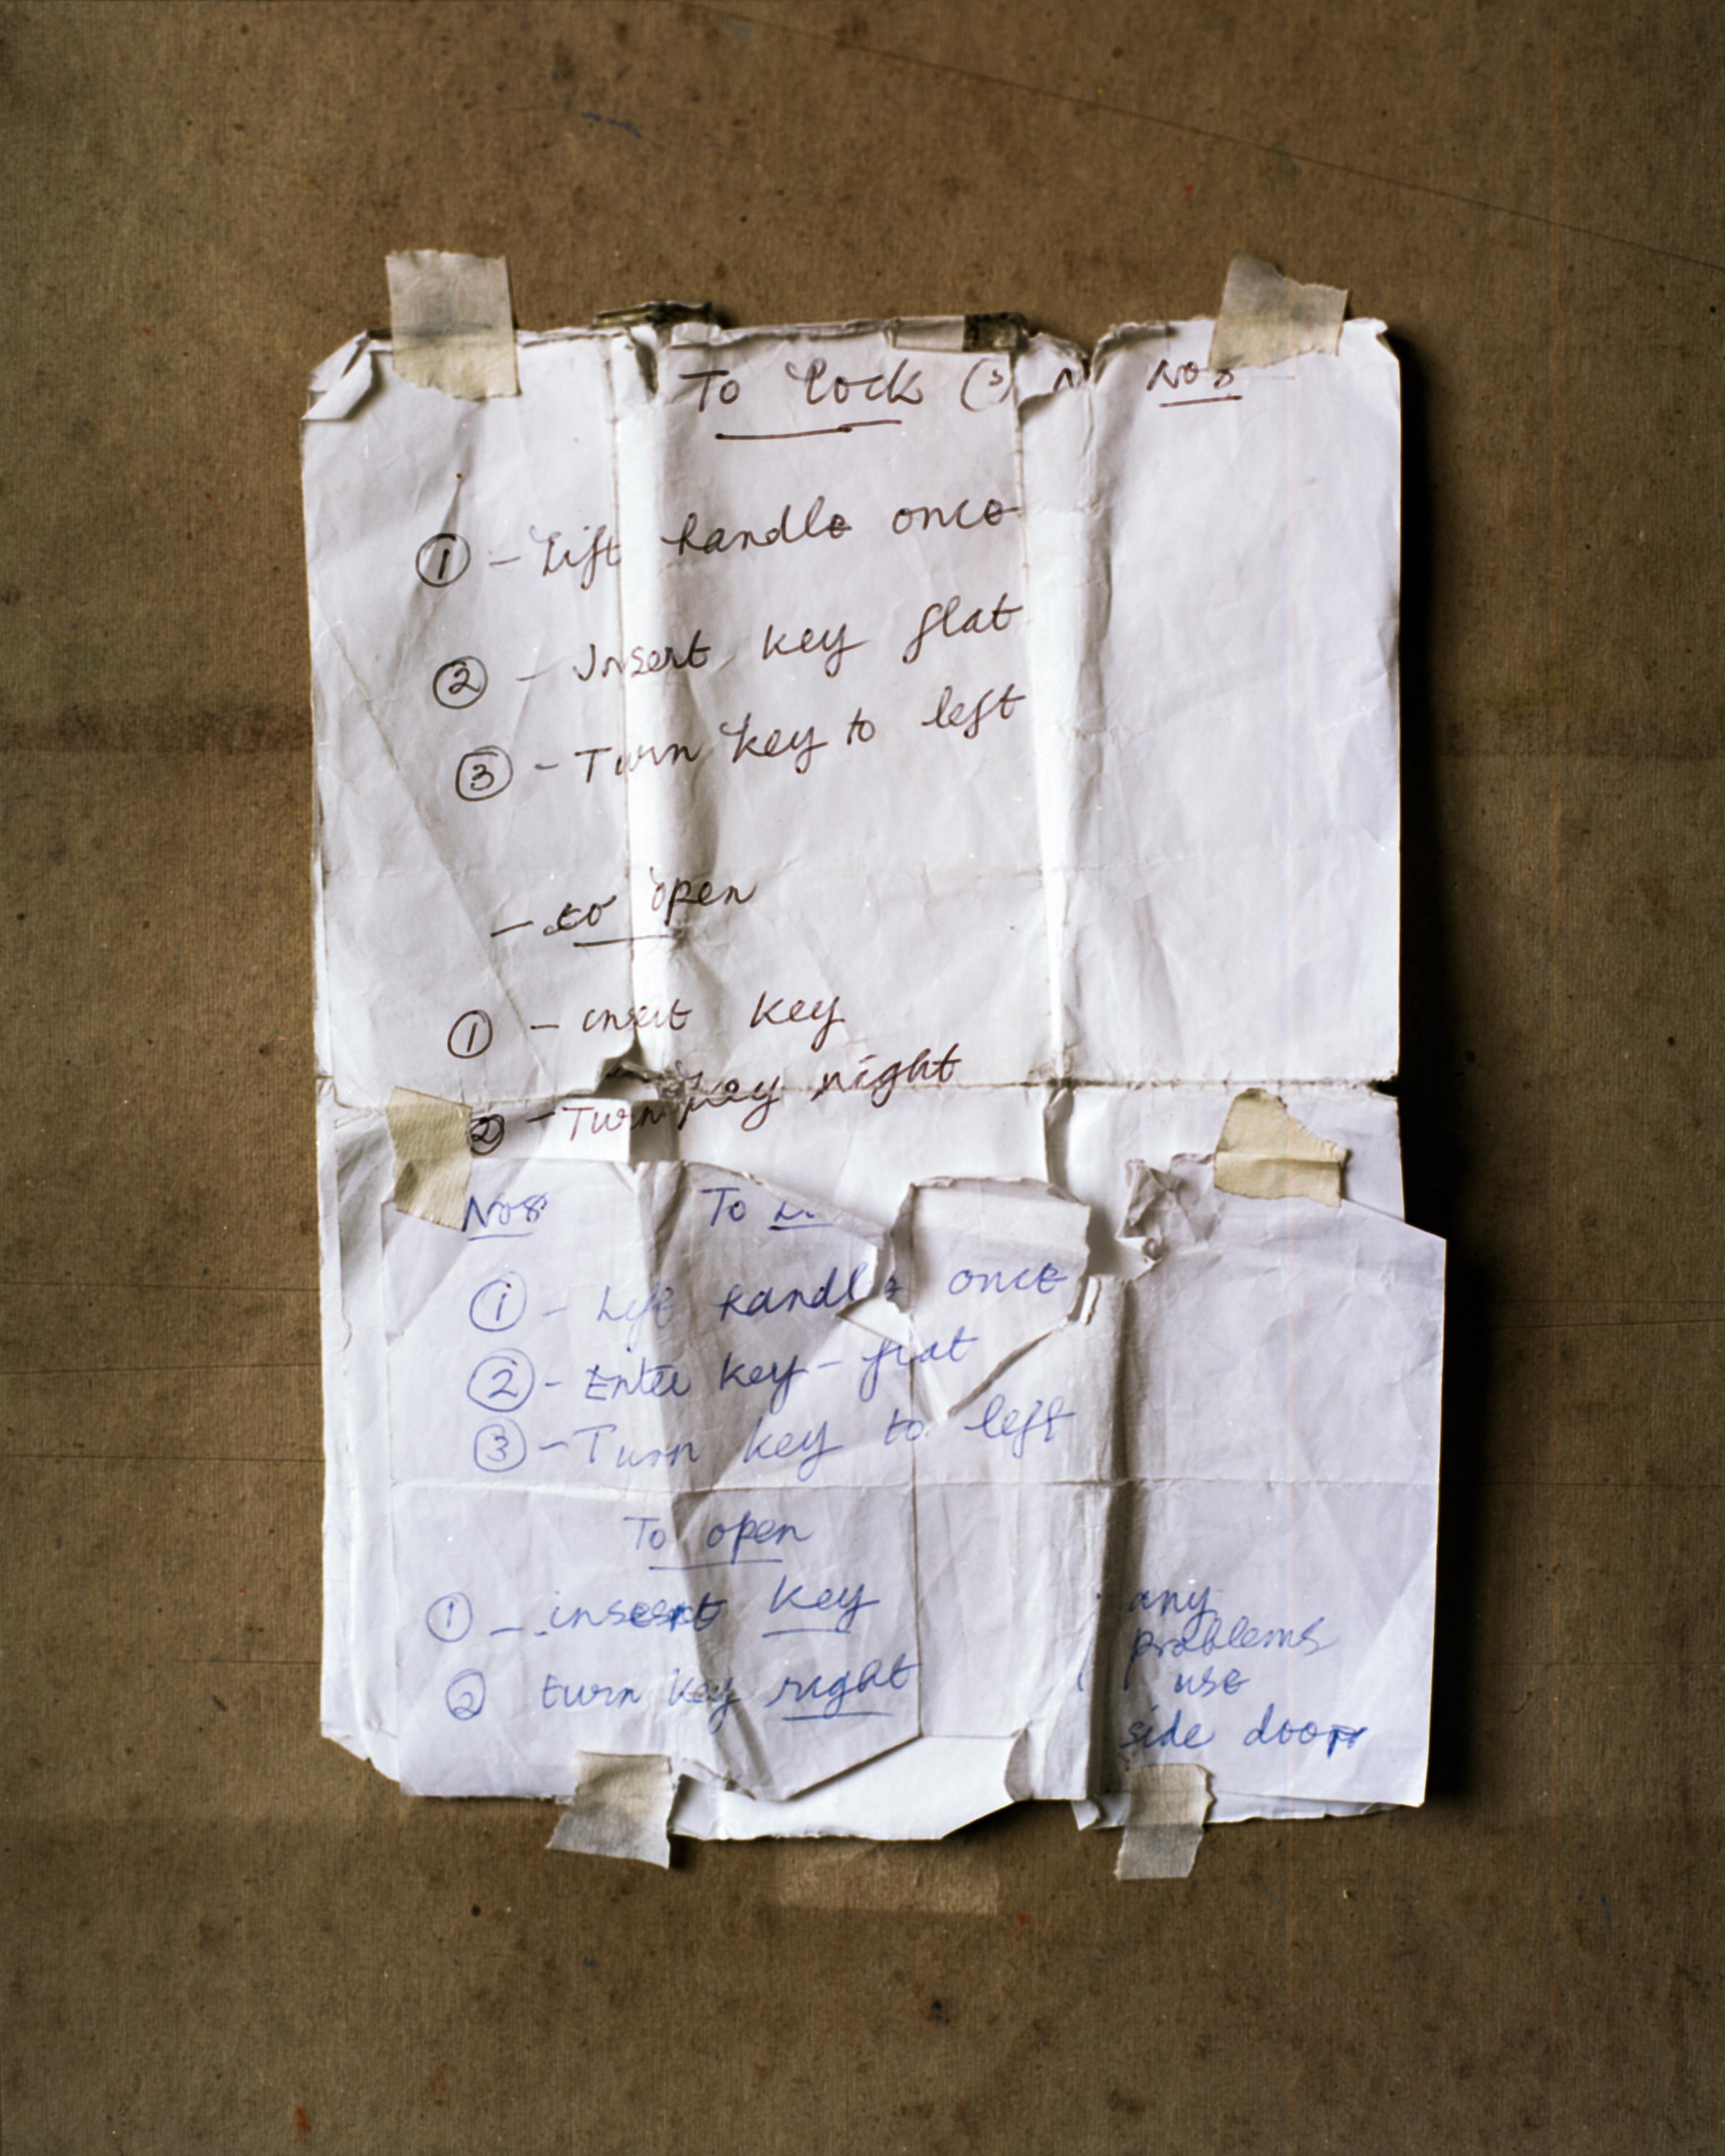 To Lock No8
① - Lift handle once
② - Insert key flat
③ - Turn key to left
- to open
① - insert key
② - Turn key right
No8 To
① - Lift handle once
② - Enter key - flat
③ - Turn key to left
To open
① - insert key
② turn key right
any
problems
use
side door